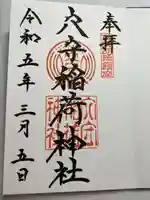 奉拝
穴守稲荷神社
令和五年三月五日